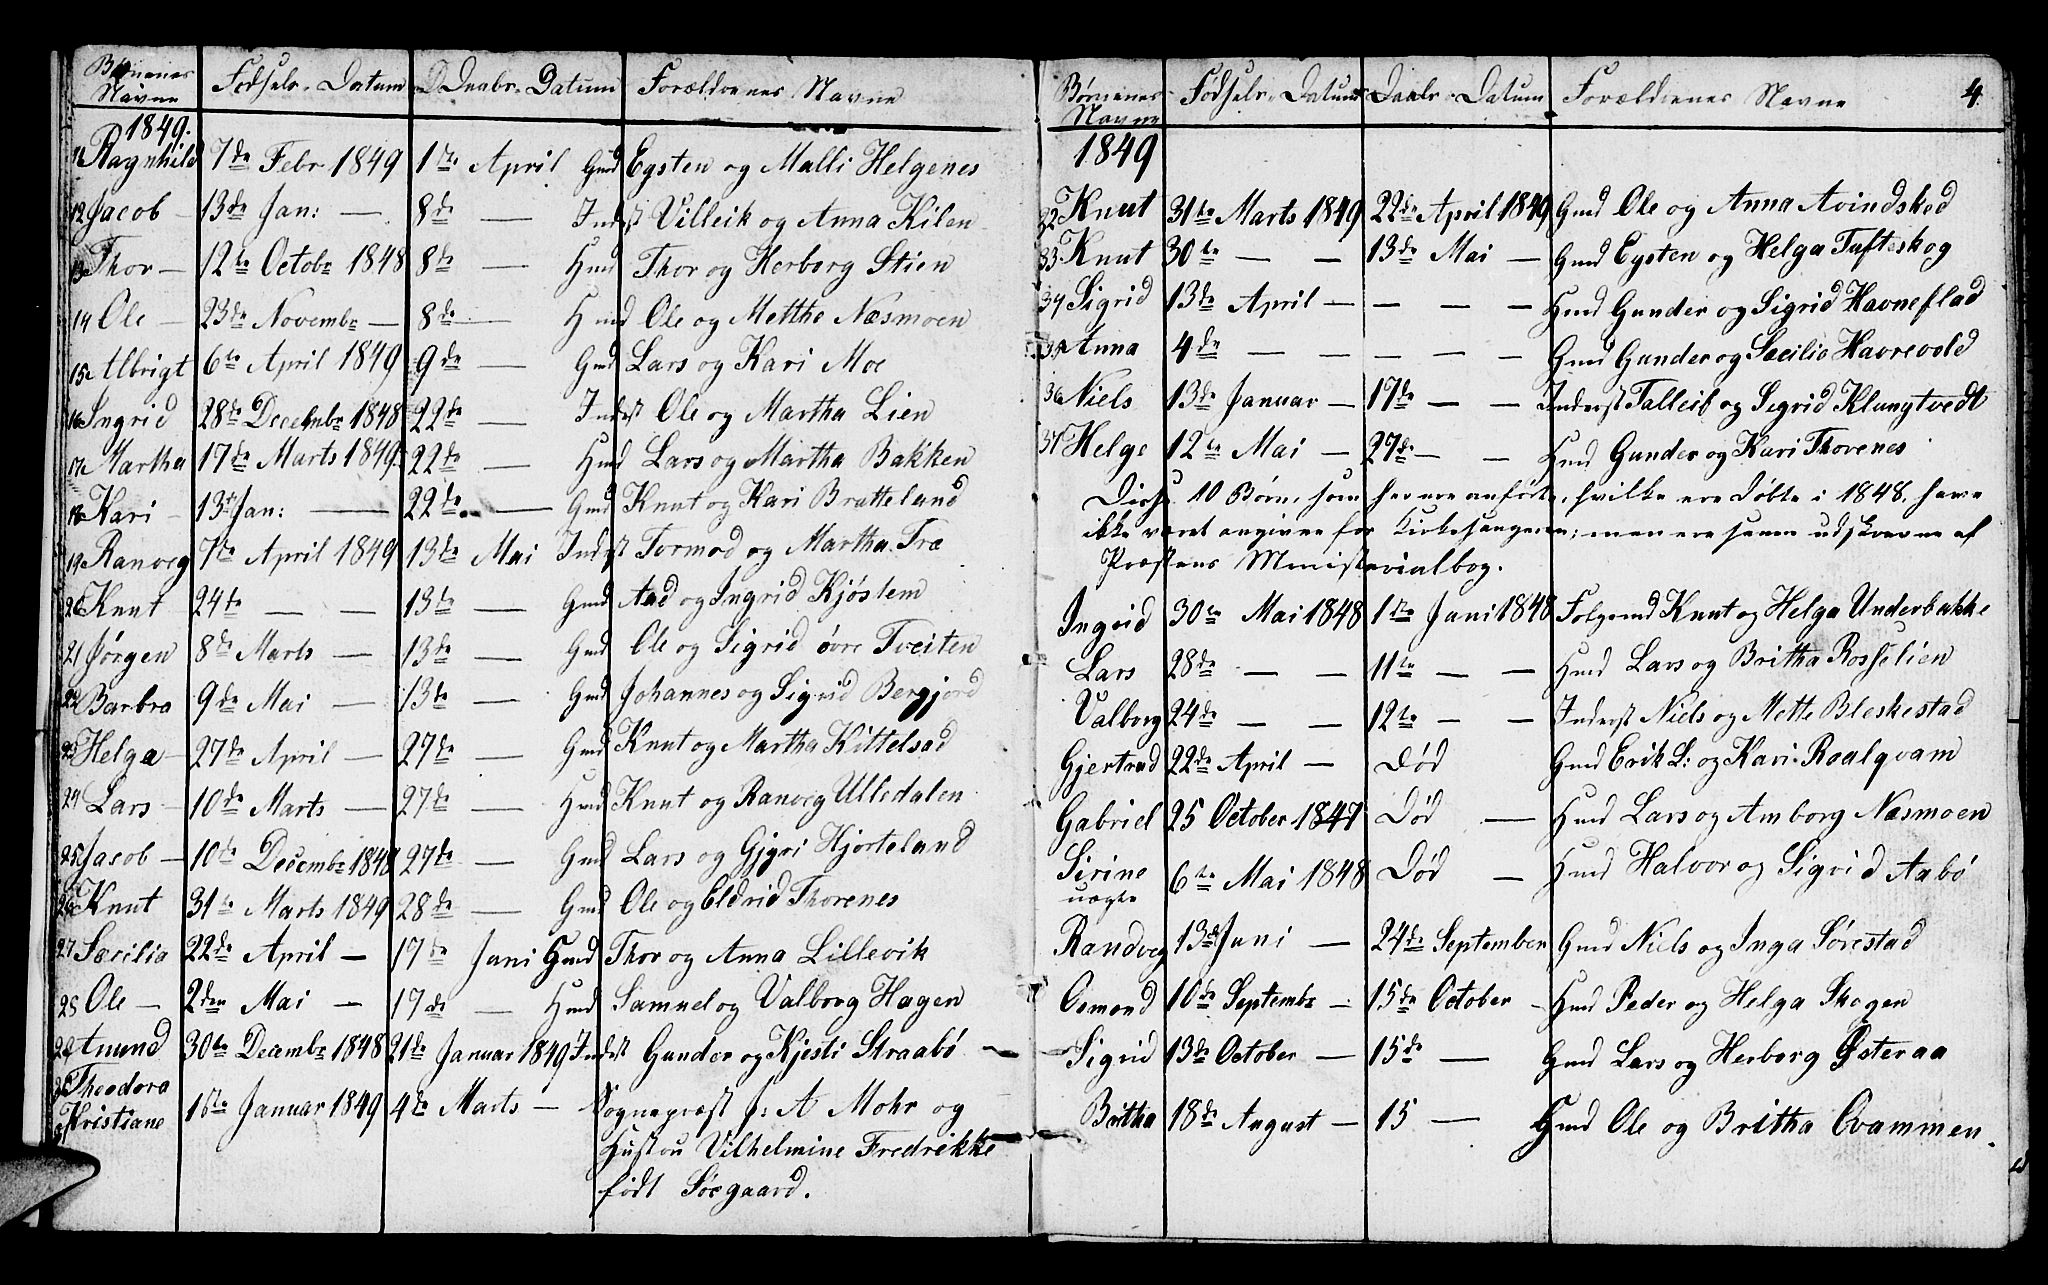 Børnenes Navne Fødsels-Datum Daabs-Datum Forældrenes Navne
1849.
11 Ragnhild 7de Febr 1849 1ste April Gmd Eysten og Malli Helgenes
12 Jacob — 13de Jan: — 8de — Inderst Villeik og Anna Kilen
13 Thor — 12te Octobr 1848 8de — Hmd Thor og Herborg Stien
14 Ole — 23de Novembr — 8de — Hmd Ole og Metthe Næsmoen
15 Albrigt 6te April 1849 9de — Gmd Lars og Kari Moe
16 Ingrid 28de Decembr 1848 22de — Inderst Ole og Martha Lien
17 Martha 17de Marts 1849 22de — Hmd Lars og Martha Bakken
18 Kari — 13de Jan: — 22de — Gmd Knut og Kari Bratteland
19 Ranveg 7de April 1849 13de Mai Inderst Tormod og Martha Træ
20 Knut 24de — — 13de — Gmd Aad og Ingrid Kjöstem
21 Jørgen 8de Marts — 13de — Gmd Ole og Sigrid øvre Tveiten
22 Barbro 9de Mai — 13de — Gmd Johannes og Sigrid Bergjord
23 Helga — 27de April — 27de — Gmd Knut og Martha Kittelsad
24 Lars — 10de Marts — 27de — Hmd Knut og Ranveg Ulledalen
25 Jacob — 10de Decembr 1848 27de — Gmd Lars og Gjyri Hjorteland
26 Knut 31te Marts 1849 28de — Gmd Ole og Eldrid Thorenes
27 Sæcilia 22de April — 17de Juni Hmd Thor og Anna Lillevik
28 Ole — 2den Mai — 17de — Hmd Samuel og Valborg Hagen
29 Amund 30te Decembr 1848 21de Januar 1849 Inderst Gunder og Kjesti Straabø
Theodora
Kristiane 16te Januar 1849 4de Marts — Sognepræst J: A Mohr og
Hustru Vilhelmine Fredrikke
født Sørgaard.
Børnenes Navne Fødsels-Datum Daabs-Datum Forældrenes Navne 4
1849
32 Knut 31te Marts 1849 22de April 1849 Gmd Ole og Anna Avindsked
33 Knut 30te — — 13de Mai — Gmd Eysten og Helga Tufteskog
34 Sigrid 13de April — — — — Hmd Gunder og Sigrid Havneflad
35 Anna 4de — — — — — Gmd Gunder og Sæcilie Havrevold
36 Niels 13de Januar — 17de — — Inderst Talleif og Sigrid Klungtvedt
37 Helge 12te Mai — 27de — — Hmd Gunder og Kari Thorenes
Disse 10 Børn, som her ere anførte, hvilke ere døbte i 1848, have
ikke været angivne for Kirkesangeren; men ere senere udskrevne af
Præstens Ministerialbog.
Ingrid 30te Mai 1848 1ste Juni 1848 Folgemd Knut og Helga Underbakke
Lars 28de — — 11te — — Hmd Lars og Britha Rosselien
Valborg 24de — — 12te — — Inderst Niels og Mette Bleskestad
Gjertrud 22de April — Død Gmd Erik L: og Kari Roalqvam
Gabriel 25 October 1847 Død — Hmd Lars og Amborg Næsmoen
Sirine
uægte 6te Mai 1848 Død — Hmd Halvor og Sigrid Aabö
Randveg 13de Juni — 24de September Gmd Niels og Inga Sørestad
Osmond 10de Septembr — 15de October — Hmd Peder og Helga Skogen
Sigrid 13de October — 15de — Gmd Lars og Herborg Østeraa
Britha 18de August — 15 — Gmd Ole og Britha Qvammen.